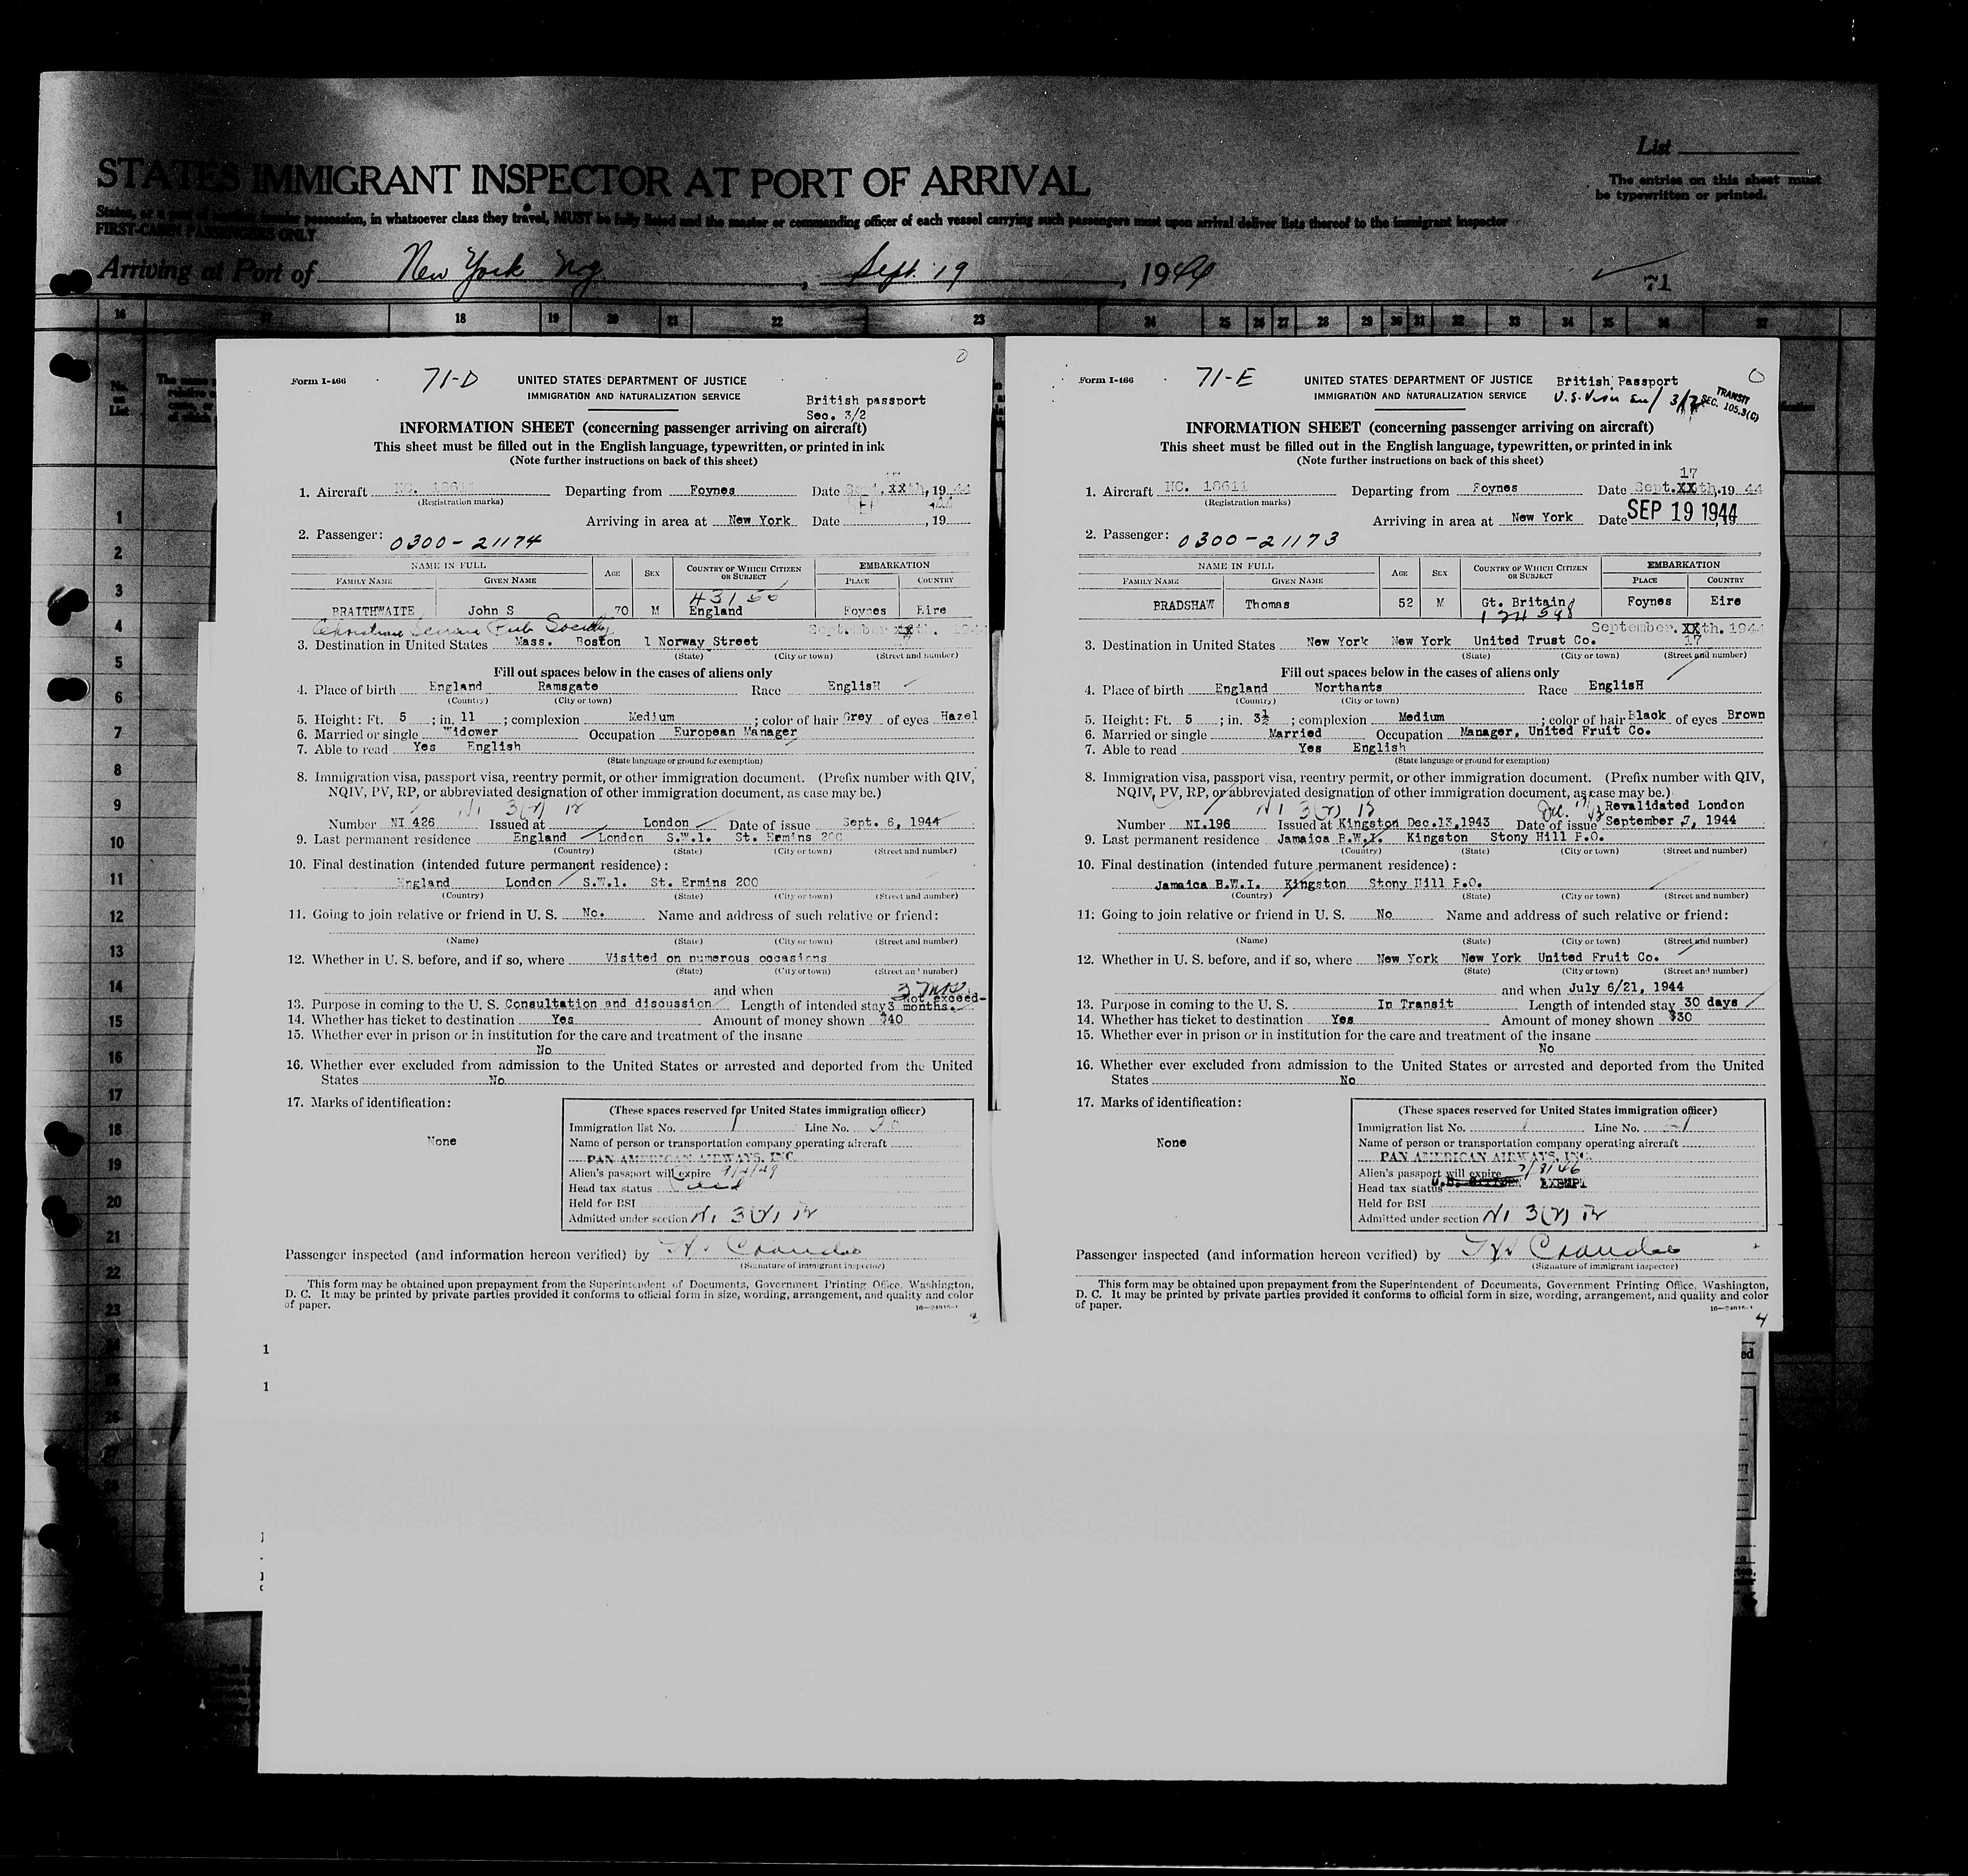 List
The entries on this sheet must
be typewritten or printed.
STATES IMMIGRANT INSPECTOR AT PORT OF ARRIVAL
possession, in whatsoever class they travel, MUST be fully listed and the master or commanding officer of each vessel carrying such passengers must upon arrival deliver lists thereof to the immigrant inspector
FIRST-CABIN PASSENGERS ONLY
Arriving at Port of New York , Sept. 19 , 1944
71
16 17 18 19 20 21 22 23 24 25 26 27 28 29 30 31 32 33 34 35 36 37
No. on List
1
2
3
4
5
6
7
8
9
10
11
12
13
14
15
16
17
18
19
20
21
22
23
Form I-466
71-D
UNITED STATES DEPARTMENT OF JUSTICE
IMMIGRATION AND NATURALIZATION SERVICE
British passport
Sec. 3/2
INFORMATION SHEET (concerning passenger arriving on aircraft)
This sheet must be filled out in the English language, typewritten, or printed in ink
(Note further instructions on back of this sheet)
17
1. Aircraft NC. 18611 Departing from Foynes Date Sept. XXth, 19 44
(Registration marks)
Arriving in area at New York Date 19
2. Passenger: 0300-21174
NAME IN FULL AGE SEX COUNTRY OF WHICH CITIZEN OR SUBJECT EMBARKATION
FAMILY NAME GIVEN NAME PLACE COUNTRY
BRAITHWAITE John S 70 M England Foynes Eire
Christian Science Pub Society September XXth. 1944
3. Destination in United States Mass. Boston 1 Norway Street
(State) (City or town) (Street and number)
Fill out spaces below in the cases of aliens only
4. Place of birth England Ramsgate Race EnglisH
(Country) (City or town)
5. Height: Ft. 5 ; in. 11 ; complexion Medium ; color of hair Grey of eyes Hazel
6. Married or single Widower Occupation European Manager
7. Able to read Yes English
(State language or ground for exemption)
8. Immigration visa, passport visa, reentry permit, or other immigration document. (Prefix number with QIV,
NQIV, PV, RP, or abbreviated designation of other immigration document, as case may be.)
NI 3(2)
Number NI 426 Issued at London Date of issue Sept. 6, 1944
9. Last permanent residence England London S.W.1. St. Ermins 200
(Country) (State) (City or town) (Street and number)
10. Final destination (intended future permanent residence):
England London S.W.1. St. Ermins 200
(Country) (State) (City or town) (Street and number)
11. Going to join relative or friend in U. S. No. Name and address of such relative or friend:
(Name) (State) (City or town) (Street and number)
12. Whether in U. S. before, and if so, where Visited on numerous occasions
(State) (City or town) (Street and number)
and when
3 mos
Not exceed-
13. Purpose in coming to the U. S. Consultation and discussion Length of intended stay 3 months.
14. Whether has ticket to destination Yes Amount of money shown $40
15. Whether ever in prison or in institution for the care and treatment of the insane
No
16. Whether ever excluded from admission to the United States or arrested and deported from the United
States No
17. Marks of identification:
None
(These spaces reserved for United States immigration officer)
Immigration list No. 1 Line No.
Name of person or transportation company operating aircraft
PAN AMERICAN AIRWAYS, INC.
Alien's passport will expire
Head tax status
Held for BSI
Admitted under section NI 3(2)
Passenger inspected (and information hereon verified) by
(Signature of immigrant inspector)
This form may be obtained upon prepayment from the Superintendent of Documents, Government Printing Office, Washington,
D. C. It may be printed by private parties provided it conforms to official form in size, wording, arrangement, and quality and color
of paper.
Form I-466
71-E
UNITED STATES DEPARTMENT OF JUSTICE
IMMIGRATION AND NATURALIZATION SERVICE
British Passport
U.S. Visa 3/2
TRANSIT
SEC. 105.3(C)
INFORMATION SHEET (concerning passenger arriving on aircraft)
This sheet must be filled out in the English language, typewritten, or printed in ink
(Note further instructions on back of this sheet)
17
1. Aircraft NC. 18611 Departing from Foynes Date Sept. XXth, 19 44
(Registration marks)
Arriving in area at New York Date SEP 19 1944
2. Passenger: 0300-21173
NAME IN FULL AGE SEX COUNTRY OF WHICH CITIZEN OR SUBJECT EMBARKATION
FAMILY NAME GIVEN NAME PLACE COUNTRY
BRADSHAW Thomas 52 M Gt. Britain Foynes Eire
September. XXth. 1944
17
3. Destination in United States New York New York United Trust Co.
(State) (City or town) (Street and number)
Fill out spaces below in the cases of aliens only
4. Place of birth England Northants Race EnglisH
(Country) (City or town)
5. Height: Ft. 5 ; in. 3½ ; complexion Medium ; color of hair Black of eyes Brown
6. Married or single Married Occupation Manager, United Fruit Co.
7. Able to read Yes English
(State language or ground for exemption)
8. Immigration visa, passport visa, reentry permit, or other immigration document. (Prefix number with QIV,
NQIV, PV, RP, or abbreviated designation of other immigration document, as case may be.)
NI 3(2) Revalidated London
Number NI.196 Issued at Kingston Dec.13,1943 Date of issue September 7, 1944
9. Last permanent residence Jamaica B.W.I. Kingston Stony Hill P.O.
(Country) (State) (City or town) (Street and number)
10. Final destination (intended future permanent residence):
Jamaica B.W.I. Kingston Stony Hill P.O.
(Country) (State) (City or town) (Street and number)
11. Going to join relative or friend in U. S. No Name and address of such relative or friend:
(Name) (State) (City or town) (Street and number)
12. Whether in U. S. before, and if so, where New York New York United Fruit Co.
(State) (City or town) (Street and number)
and when July 6/21, 1944
13. Purpose in coming to the U. S. In Transit Length of intended stay 30 days
14. Whether has ticket to destination Yes Amount of money shown $30
15. Whether ever in prison or in institution for the care and treatment of the insane
No
16. Whether ever excluded from admission to the United States or arrested and deported from the United
States No
17. Marks of identification:
None
(These spaces reserved for United States immigration officer)
Immigration list No. Line No.
Name of person or transportation company operating aircraft
PAN AMERICAN AIRWAYS, INC.
Alien's passport will expire
Head tax status EXEMPT
Held for BSI
Admitted under section NI 3(2)
Passenger inspected (and information hereon verified) by
(Signature of immigrant inspector)
This form may be obtained upon prepayment from the Superintendent of Documents, Government Printing Office, Washington,
D. C. It may be printed by private parties provided it conforms to official form in size, wording, arrangement, and quality and color
of paper.
4